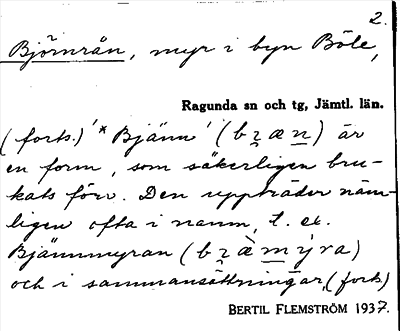 2.
Björnrån, myr i byn Böle,
Ragunda sn och tg, Jämtl. län.
(forts.) '*Bjänn' (bʒæn) är
en form, som säkerligen bru-
kats förr. Den uppträder näm-
ligen ofta i namn, t. ex.
Bjännmyran (bʒæ̀mýra)
och i sammansättningar, (forts)
BERTIL FLEMSTRÖM 1937.